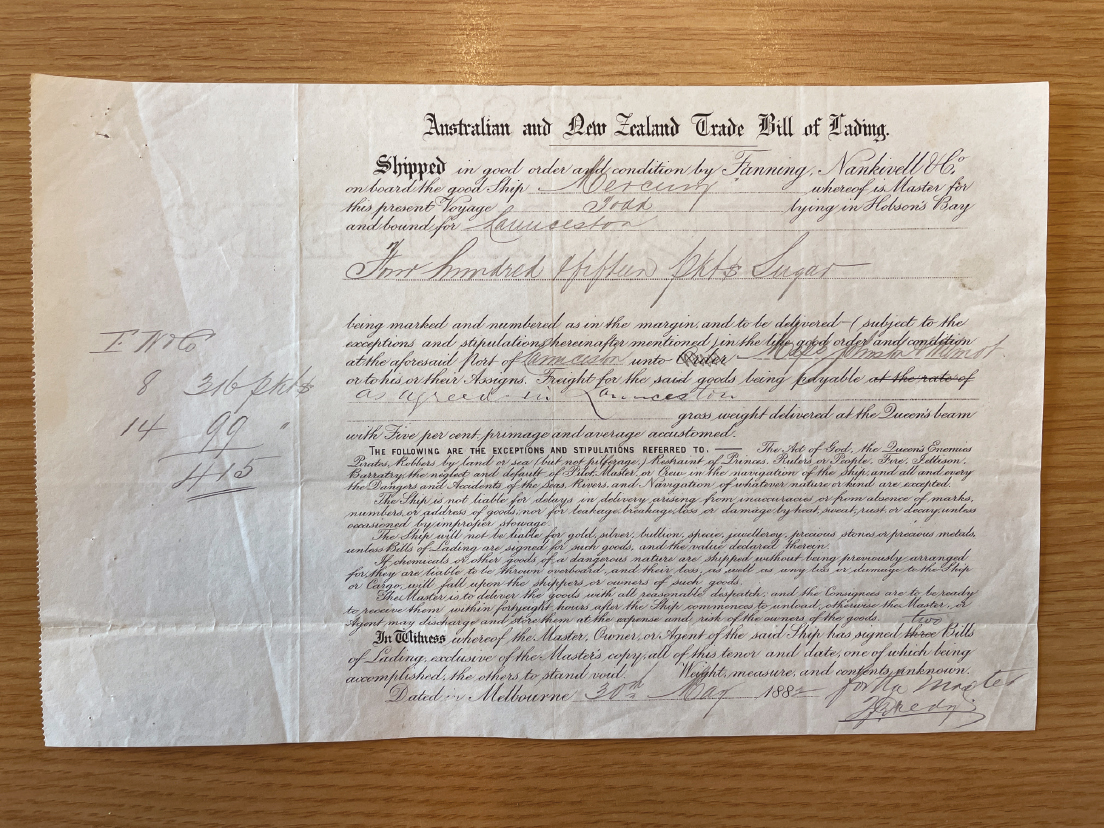 Australian and New Zealand Trade Bill of Lading.
Shipped in good order and condition by Fanning, Nankivell & Co
on board the good Ship Mercury whereof is Master for
this present Voyage Todd lying in Hobson's Bay
and bound for Launceston
Four hundred & fifteen pkts Sugar
being marked and numbered as in the margin, and to be delivered (subject to the
exceptions and stipulations hereinafter mentioned) in the like good order and condition
at the aforesaid Port of Launceston unto Order Messrs Johnstone & Wilmot
or to his or their Assigns. Freight for the said goods being payable at the rate of
as agreed in Launceston
gross weight delivered at the Queen's beam
with Five per cent, primage and average accustomed.
F W Co
8 316 pkts
14 99 "
415
THE FOLLOWING ARE THE EXCEPTIONS AND STIPULATIONS REFERRED TO. — The Act of God, the Queen's Enemies
Pirates, Robbers by land or sea (but not pilferage,) Restraint of Princes, Rulers or People, Fire, Jettison,
Barratry, the neglect and default of Pilot, Master, or Crew in the navigation of the Ship, and all and every
the Dangers and Accidents of the Seas, Rivers, and Navigation of whatever nature or kind are excepted.
The Ship is not liable for delays in delivery arising from inaccuracies or from absence of marks,
numbers, or address of goods, nor for leakage, breakage, loss or damage by heat, sweat, rust, or decay, unless
occasioned by improper stowage.
The Ship will not be liable for gold, silver, bullion, specie, jewellery, precious stones or precious metals,
unless Bills of Lading are signed for such goods, and the value declared therein.
If chemicals or other goods of a dangerous nature are shipped without being previously arranged
for, they are liable to be thrown overboard, and their loss, as well as any loss or damage to the Ship
or Cargo, will fall upon the shippers or owners of such goods.
The Master is to deliver the goods with all reasonable despatch, and the Consignees are to be ready
to receive them within forty eight hours after the Ship commences to unload, otherwise the Master, or
Agent, may discharge and store them at the expense and risk of the owners of the goods.
two
In Witness whereof the Master, Owner, or Agent of the said Ship has signed three Bills
of Lading, exclusive of the Master's copy, all of this tenor and date, one of which being
accomplished, the others to stand void. Weight, measure, and contents, unknown.
Dated in Melbourne 30th May 1882 for the Master